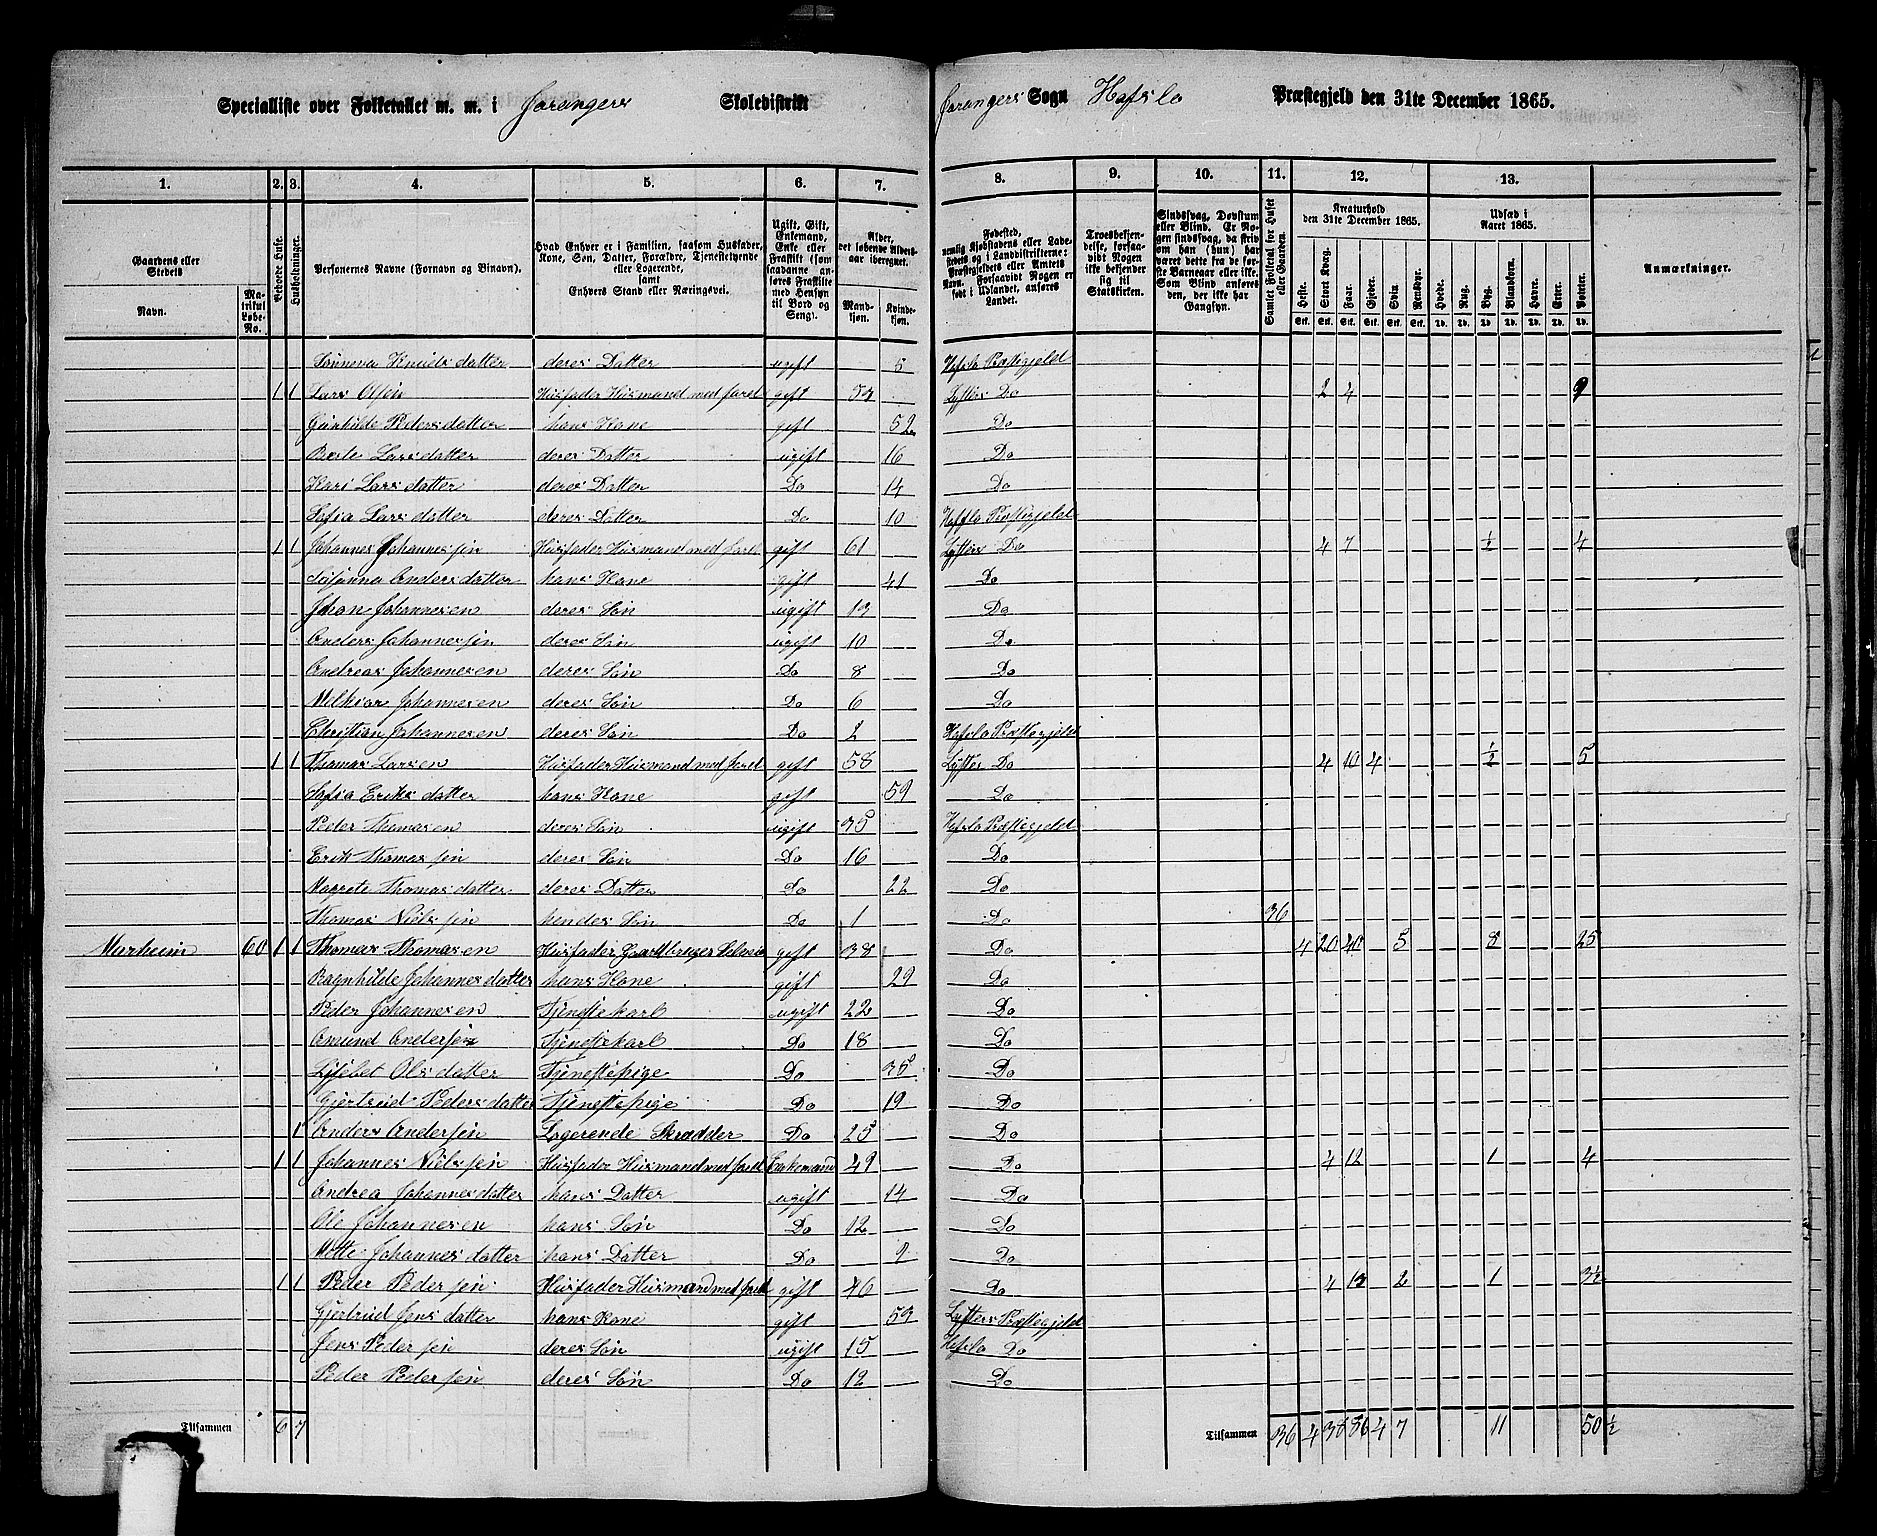 Specialliste over Folketallet m. m. i Joranger Skoledistrikt Joranger Sogn Hafslo Præstegjeld den 31te December 1865.
1. 2. 3. 4. 5. 6. 7. 8. 9. 10. 11. 12. 13.
Gaardens eller Stedets
Navn.
Matrikul Løbe-No.
Beboede Huse.
Husholdninger.
Personernes Navne (Fornavn og Binavn).
Hvad Enhver er i Familien, saasom Husfader, Kone, Søn, Datter, Forældre, Tjenestetyende eller Logerende, samt Enhvers Stand eller Næringsvei.
Ugift, Gift, Enkemand, Enke eller Fraskilt (som saadanne anføres Fraskilte med Hensyn til Bord og Seng).
Alder, det løbende Alders-aar iberegnet.
Mand-kjøn.
Kvinde-kjøn.
Fødested, nemlig Kjøbstadens eller Ladestedets og i Landdistrikterne: Præstegjeldets eller Amtets Navn. Forsaavidt Nogen er født i Udlandet, anføres Landet.
Troesbekjendelse, forsaavidt Nogen ikke bekjender sig til Statskirken.
Sindssvag, Døvstum eller Blind. Er Nogen sindssvag, da skriv om han (hun) har været dette fra de første Barneaar eller ikke. Som Blind anføres den, der ikke har Gangsyn.
Samlet Folketal for Huset eller Gaarden.
Kreaturhold den 31te December 1865.
Heste. Stort Kvæg. Faar. Gjeder. Svin. Rensdyr.
Udsæd i Aaret 1865.
Hvede. Rug. Byg. Blandkorn. Havre. Erter. Poteter.
Anmærkninger.
Sunneva Knudsdatter deres Datter ugift 5 Hafslo Præstegjeld
1 1 Lars Olsen Husfader Husmand med Jord gift 53 Lyster Do 2 4 9
Gunhilde Pedersdatter hans Kone gift 52 Do
Berte Larsdatter deres Datter ugift 16 Do
Kari Larsdatter deres Datter Do 14 Do
Sofia Larsdatter deres Datter Do 10 Hafslo Præstegjeld
1 1 Johannes Johannessen Husfader Husmand med Jord gift 61 Lyster Do 4 7 ½ 4
Susanna Andersdatter hans Kone gift 41 Do
Johan Johannesen deres Søn ugift 13 Do
Anders Johannessen deres Søn ugift 10 Do
Andreas Johannesen deres Søn Do 8 Do
Melkior Johannesen deres Søn Do 6 Do
Christian Johannesen deres Søn Do 2 Hafslo Præstegjeld
1 1 Thomas Larsen Husfader Husmand med Jord gift 58 Lyster Do 4 10 4 ½ 5
Sofia Eriksdatter hans Kone gift 59 Do
Peder Thomasen deres Søn ugift 35 Hafslo Præstegjeld
Erik Thomassen deres Søn Do 16 Do
Magrete Thomasdatter deres Datter Do 22 Do
Thomas Nielssen hendes Søn Do 1 Do 36
Marheim 60 1 1 Thomas Thomasen Husfader Gaardbruger Selveier gift 38 Do 4 20 40 5 8 25
Ragnhilde Johannesdatter hans Kone gift 29 Do
Peder Johannesen Tjenestekarl ugift 22 Do
Amund Andersen Tjenestekarl Do 18 Do
Lisebet Olsdatter Tjenestepige Do 35 Do
Gjertrud Pedersdatter Tjenestepige Do 19 Do
1 Anders Andersen Logerende Skrædder Do 25 Do
1 1 Johannes Nielssen Husfader Husmand med Jord Enkemand 49 Do 4 12 1 4
Andrea Johannesdatter hans Datter ugift 14 Do
Ole Johannesen hans Søn Do 12 Do
Mette Johannesdatter hans Datter Do 9 Do
1 1 Peder Pedersen Husfader Husmand med Jord gift 46 Do 4 13 2 1 3½
Gjertrud Jensdatter hans Kone gift 59 Lyster Præstegjeld
Jens Pedersen deres Søn ugift 15 Hafslo Do
Peder Pedersen deres Søn Do 12 Do
Tilsammen 6 7 Tilsammen 36 4 38 86 4 7 11 50 ½